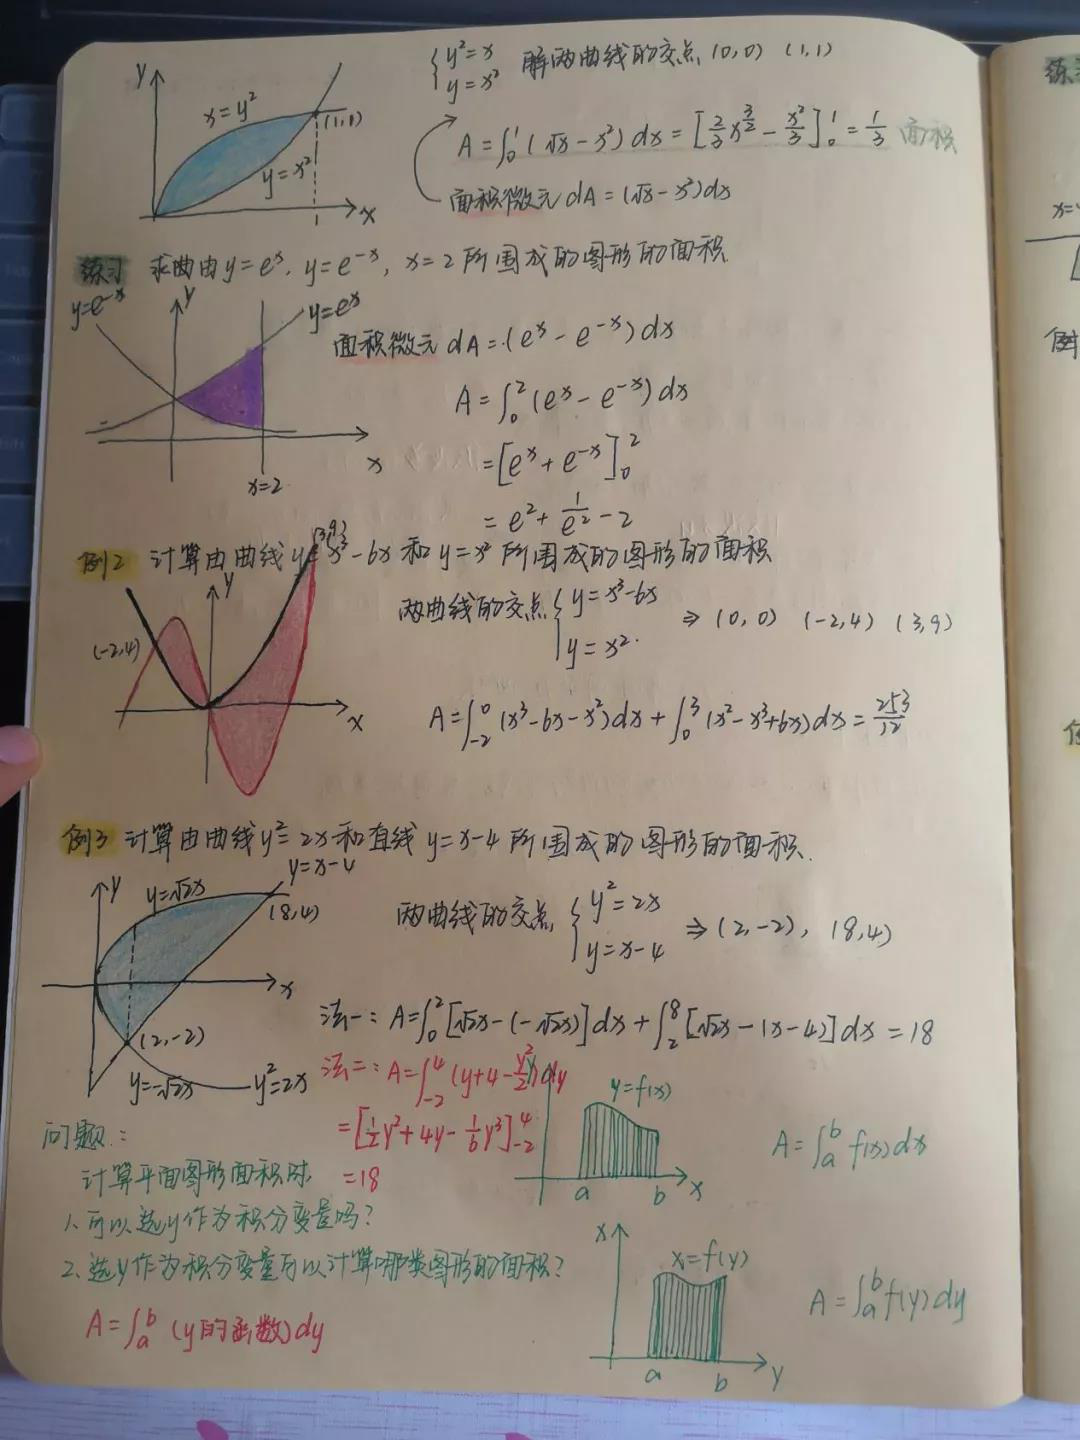 y
x=y²
(1,1)
y=x²
x
{y²=x
y=x² 解两曲线的交点 (0,0) (1,1)
A=∫₀¹(√x-x²)dx=[2/3 x^(3/2) - x²/3]₀¹=1/3 面积
面积微元dA=(√x-x²)dx
练习 求曲由y=eˣ, y=e⁻ˣ, x=2所围成的图形的面积
y=e⁻ˣ
y
y=eˣ
x
x=2
面积微元 dA=(eˣ-e⁻ˣ)dx
A=∫₀²(eˣ-e⁻ˣ)dx
=[eˣ+e⁻ˣ]₀²
=e²+1/e²-2
例2 计算由曲线y=x³-6x和y=x²所围成的图形的面积
(3,9)
y
(-2,4)
x
两曲线的交点{y=x³-6x
y=x² ⇒ (0,0) (-2,4) (3,9)
A=∫₋₂⁰(x³-6x-x²)dx+∫₀³(x²-x³+6x)dx=253/12
例3 计算由曲线y²=2x和直线y=x-4所围成的图形的面积.
y=x-4
y
y=√2x
(8,4)
x
(2,-2)
y=-√2x
y²=2x
两曲线的交点{y²=2x
y=x-4 ⇒(2,-2), (8,4)
法一: A=∫₀²[√2x-(-√2x)]dx+∫₂⁸[√2x-(x-4)]dx=18
法二: A=∫₋₂⁴(y+4-y²/2)dy
=[1/2y²+4y-1/6y³]₋₂⁴
=18
问题:
计算平面图形面积时,
1.可以选y作为积分变量吗?
2.选y作为积分变量可以计算哪类图形的面积?
A=∫ₐᵇ(y的函数)dy
y
y=f(x)
a
b
x
A=∫ₐᵇf(x)dx
x
x=f(y)
a
b
y
A=∫ₐᵇf(y)dy
练
x=
例